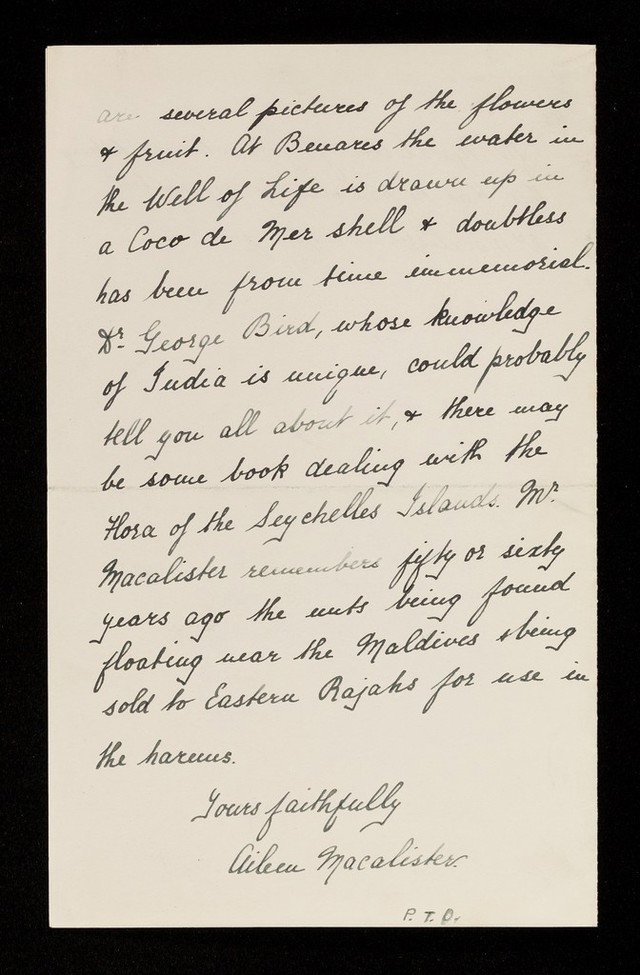 are several pictures of the flowers
& fruit. At Benares the water in
the Well of Life is drawn up in
a Coco de Mer shell & doubtless
has been from time immemorial.
Dr. George Bird, whose knowledge
of India is unique, could probably
tell you all about it, & there may
be some book dealing with the
Flora of the Seychelles Islands. Mr.
Macalister remembers fifty or sixty
years ago the nuts being found
floating near the Maldives & being
sold to Eastern Rajahs for use in
the harems.
Yours faithfully
Aileen Macalister.
P.T.O.